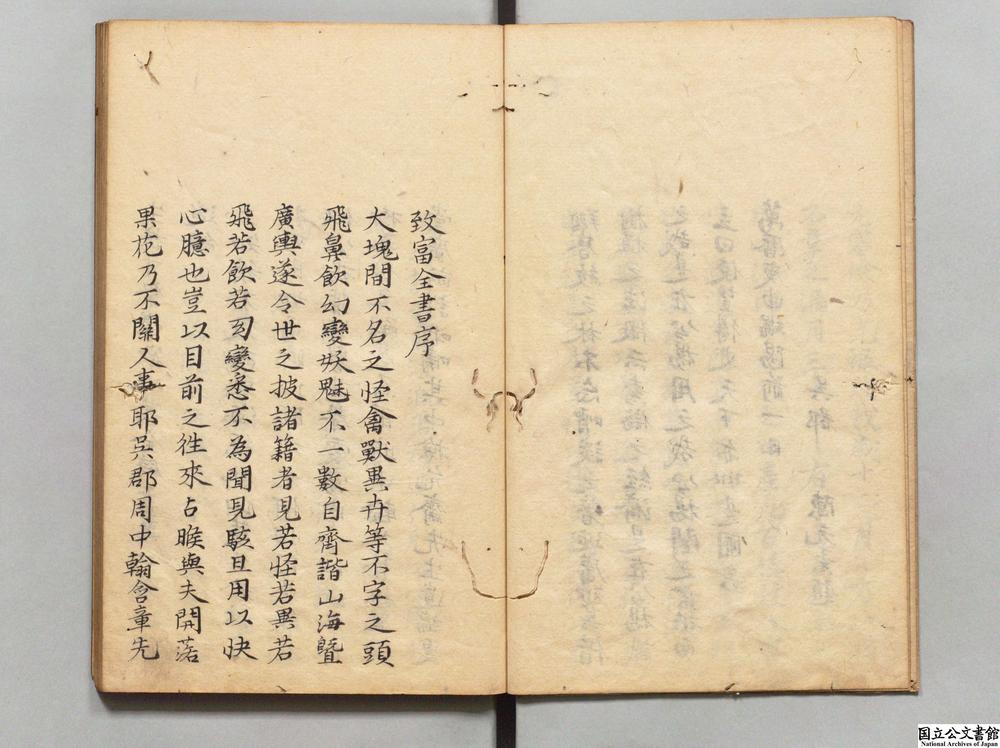 致富全書序
大塊間不名之怪禽獸異卉等不字之頭
飛鼻飲幻變妖魅不一數自齊諧山海曁
廣輿遂令世之披諸籍者見若怪若異若
飛若飲若幻變悉不為聞見駭且用以快
心臆也豈以目前之徃來占睺與夫開落
果花乃不關人事耶吳郡周中翰含章先
国立公文書館
National Archives of Japan